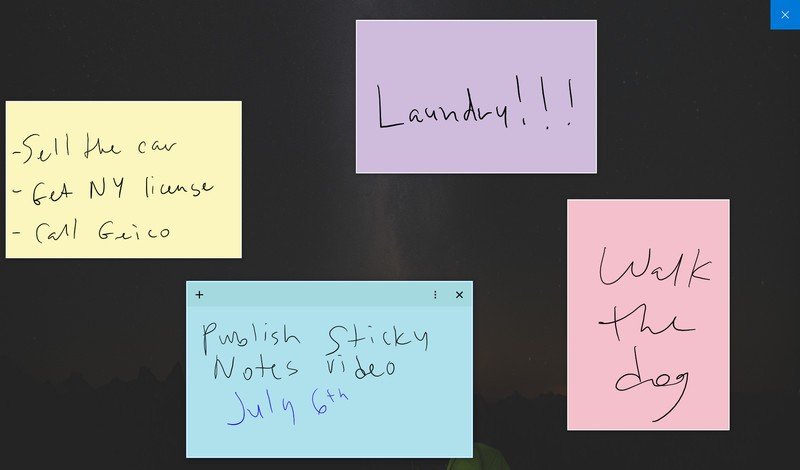 Laundry!!!
-Sell the car
- Get NY license
- Call Geico
Walk
the
dog
Publish Sticky
Notes video
July 6th